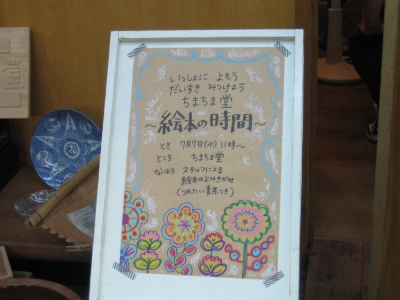 いっしょに よもう
だいすき みつけよう
ちまちま堂
～絵本の時間～
とき 7月7日(水) 11時～
ところ ちまちま堂
ないよう スタッフによる
絵本のよみきかせ
(つめたい麦茶つき)